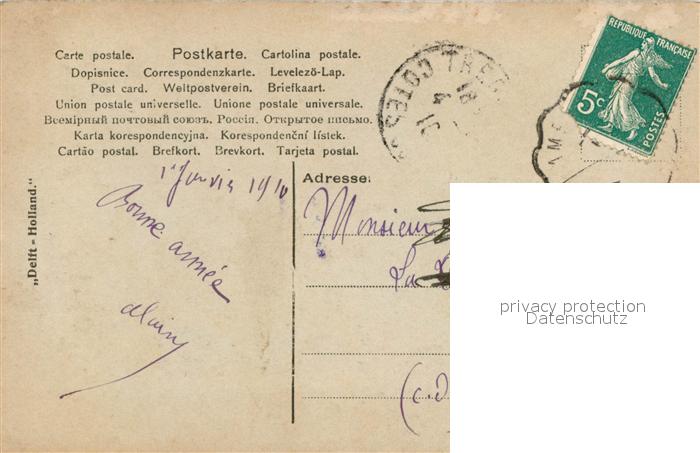 Carte postale. Postkarte. Cartolina postale.
Dopisnice. Correspondenzkarte. Levelező-Lap.
Post card. Weltpostverein. Briefkaart.
Union postale universelle. Unione postale universale.
Всемірный почтовый союзъ. Россія. Открытое письмо.
Karta korespondencyjna. Korespondenční lístek.
Cartão postal. Brefkort. Brevkort. Tarjeta postal.
„Delft = Holland."
1er Janvier 1910
Bonne année
Adresse:
Monsieur
La
(c.d
REPUBLIQUE FRANÇAISE
5c
POSTES
COTES
privacy protection
Datenschutz